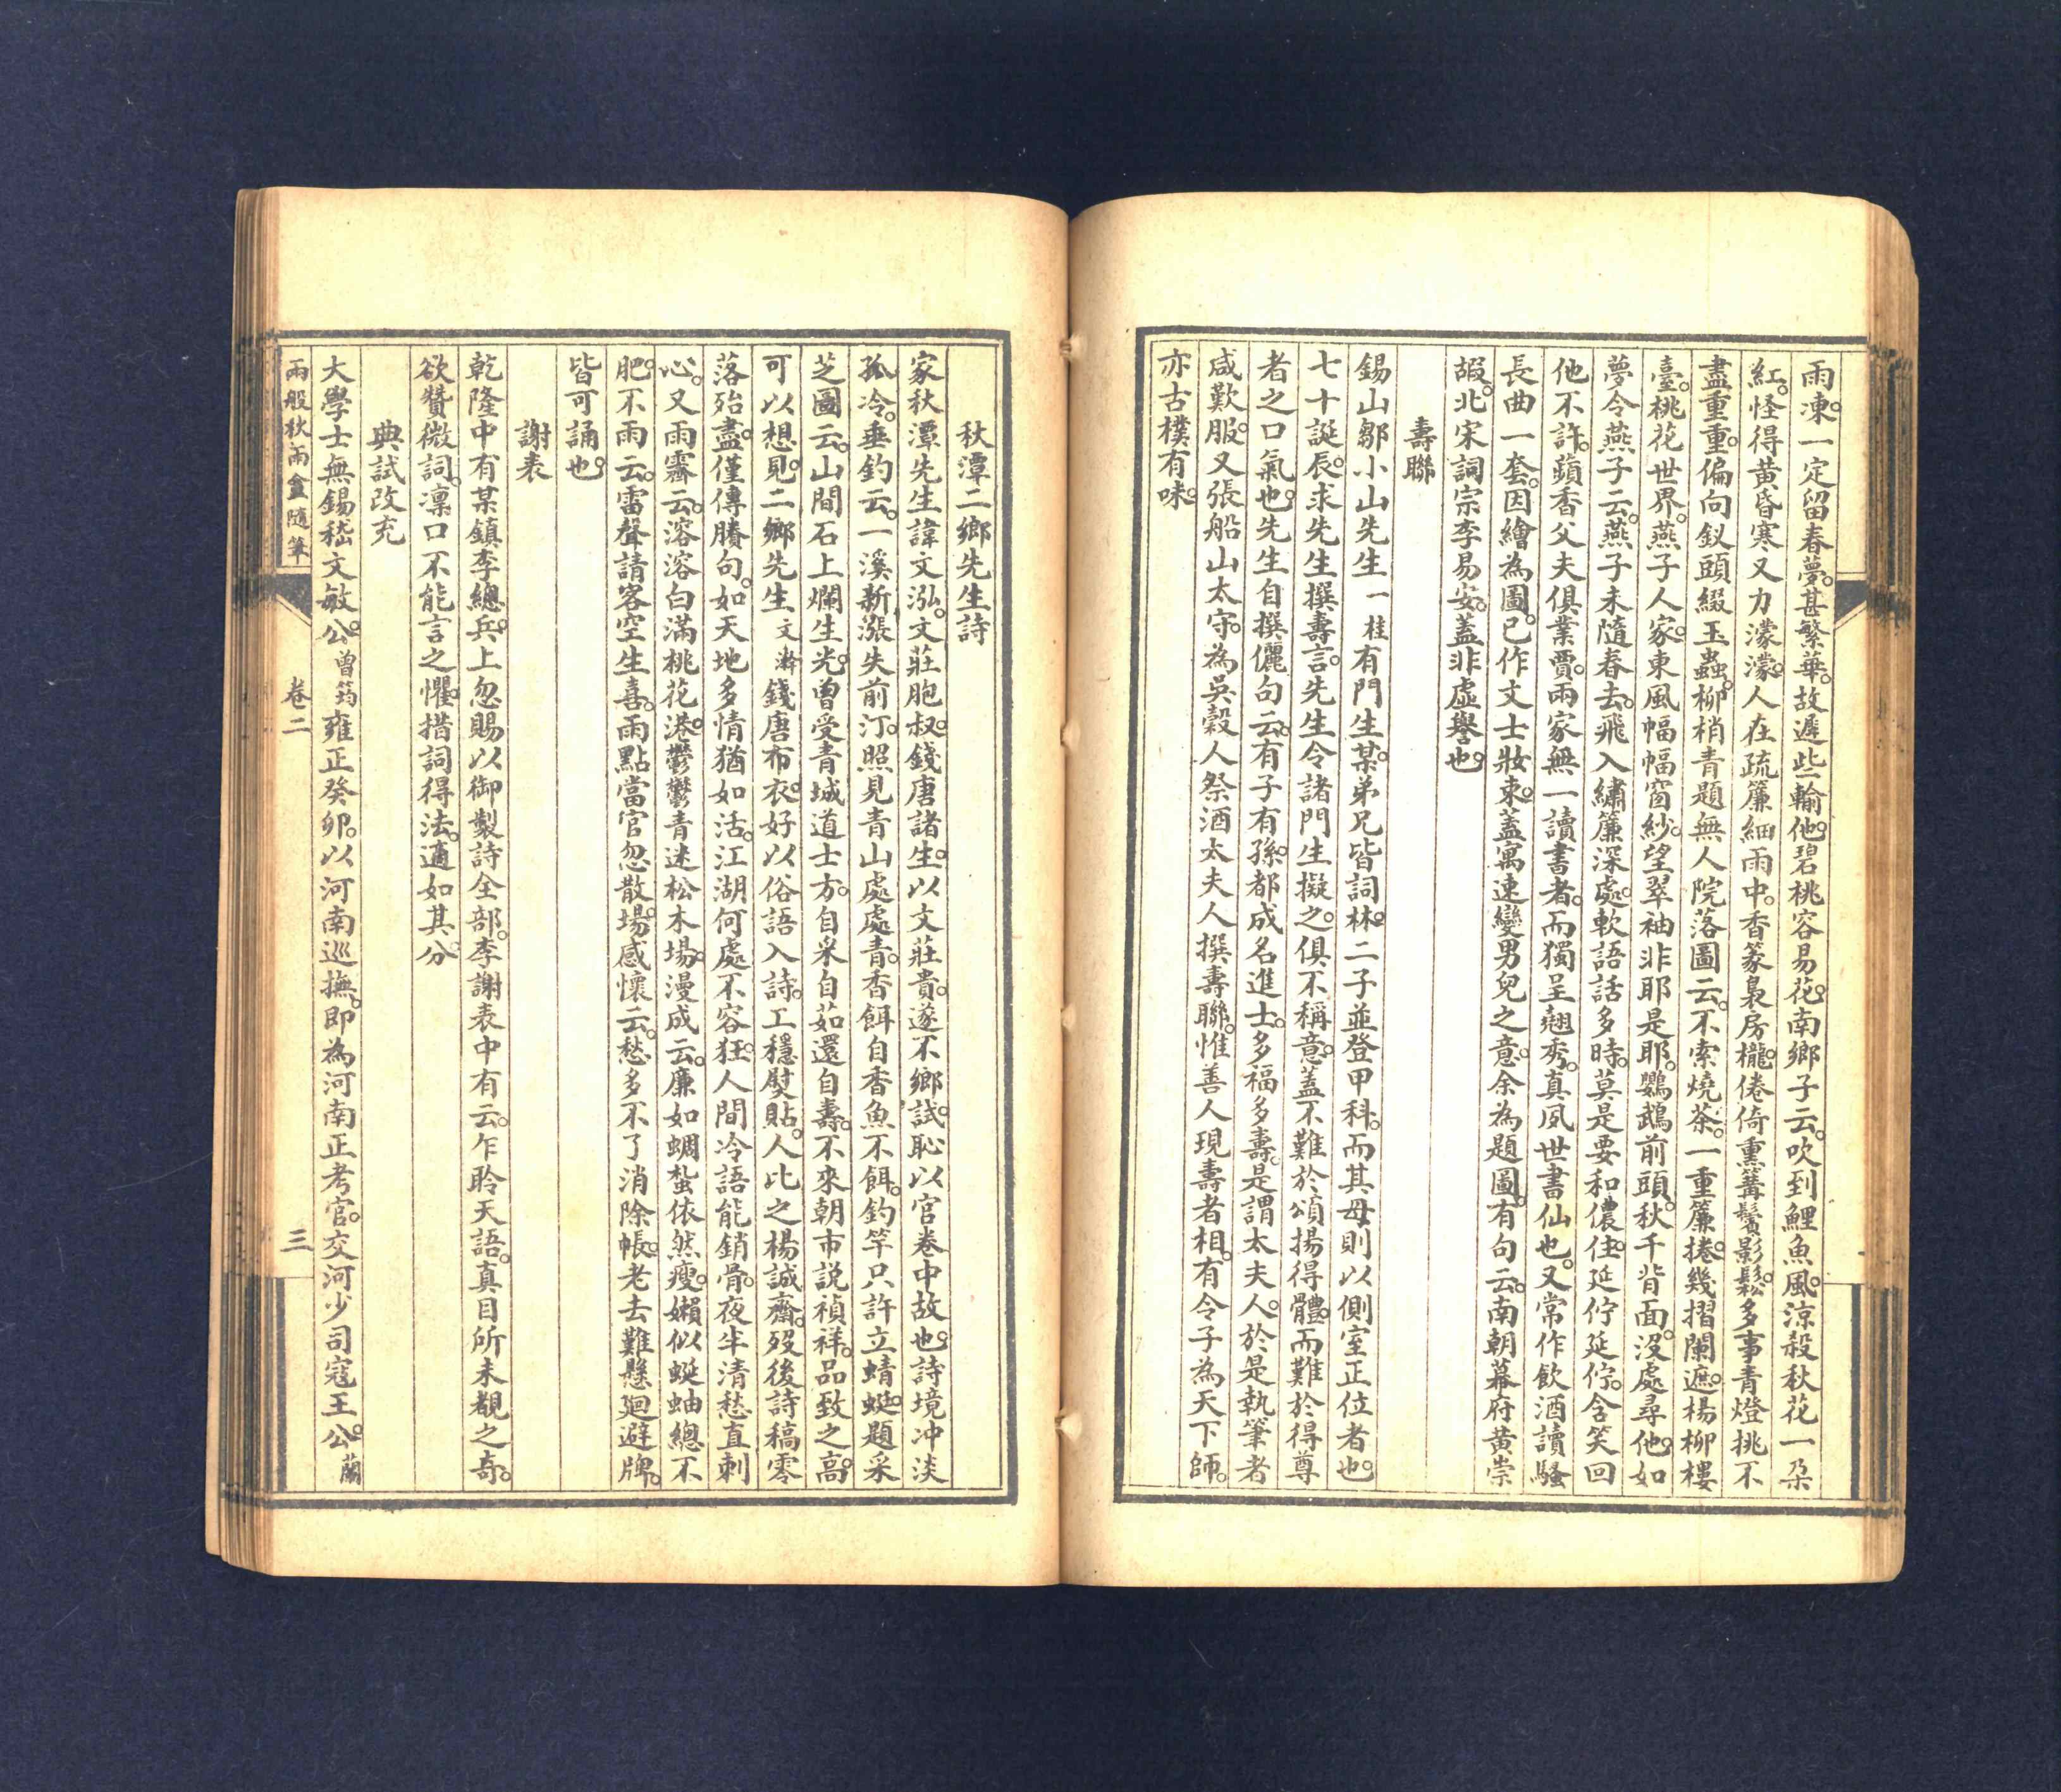 雨凍。一定留春夢。甚繁華。故遲些輸他。碧桃容易花。南鄉子云。吹到鯉魚風。涼殺秋花一朵
紅。怪得黃昏寒又力濛濛。人在疏簾細雨中。香篆裊房櫳。倦倚熏篝鬢影鬆。多事青燈挑不
盡重重。偏向釵頭綴玉蟲。柳梢青題無人院落圖云。不索燒茶。一重簾捲。幾摺闌遮。楊柳樓
臺。桃花世界。燕子人家。東風幅幅窗紗。望翠袖非耶是耶。鸚鵡前頭。秋千背面。沒處尋他。如
夢令燕子云。燕子未隨春去。飛入繡簾深處。軟語話多時。莫是要和儂住。延佇延佇。含笑回
他不許。蘋香父夫俱業賈。兩家無一讀書者。而獨呈翹秀。真夙世書仙也。又常作飲酒讀騷
長曲一套。因繪為圖。己作文士妝束。蓋寓速變男兒之意。余為題圖。有句云。南朝幕府黃崇
嘏。北宋詞宗李易安。蓋非虛譽也。
壽聯
錫山鄒小山先生一桂有門生某。弟兄皆詞林。二子並登甲科。而其母則以側室正位者也。
七十誕辰。求先生撰壽言。先生令諸門生擬之。俱不稱意。蓋不難於頌揚得體。而難於得尊
者之口氣也。先生自撰儷句云。有子有孫。都成名進士。多福多壽。是謂太夫人。於是執筆者
咸歎服。又張船山太守。為吳穀人祭酒太夫人撰壽聯。惟善人現壽者相。有令子為天下師。
亦古樸有味。
秋潭二鄉先生詩
家秋潭先生諱文泓。文莊胞叔。錢唐諸生。以文莊貴。遂不鄉試。恥以官卷中故也。詩境冲淡
孤冷。垂釣云。一溪新漲失前汀。照見青山處處青。香餌自香魚不餌。釣竿只許立蜻蜓。題采
芝圖云。山間石上爛生光。曾受青城道士方。自采自茹還自壽。不來朝市說禎祥。品致之高。
可以想見。二鄉先生文濂錢唐布衣。好以俗語入詩。工穩熨貼。人比之楊誠齋。歿後詩稿零
落殆盡。僅傳賸句。如天地多情猶如活。江湖何處不容狂。人間冷語能銷骨。夜半清愁直刺
心。又雨霽云。溶溶白滿桃花港。鬱鬱青迷松木場。漫成云。廉如蜩蜇依然瘦。嬾似蜒蚰總不
肥。不雨云。雷聲請客空生喜。雨點當官忽散場。感懷云。愁多不了消除帳。老去難懸迴避牌。
皆可誦也。
謝表
乾隆中有某鎮李總兵。上忽賜以御製詩全部。李謝表中有云。乍聆天語。真目所未覩之奇。
欲贊微詞。凜口不能言之懼。措詞得法。適如其分。
典試改充
大學士無錫嵇文敏公。曾筠雍正癸卯。以河南巡撫。即為河南正考官。交河少司寇王公。蘭
兩般秋雨盦隨筆
卷二
三